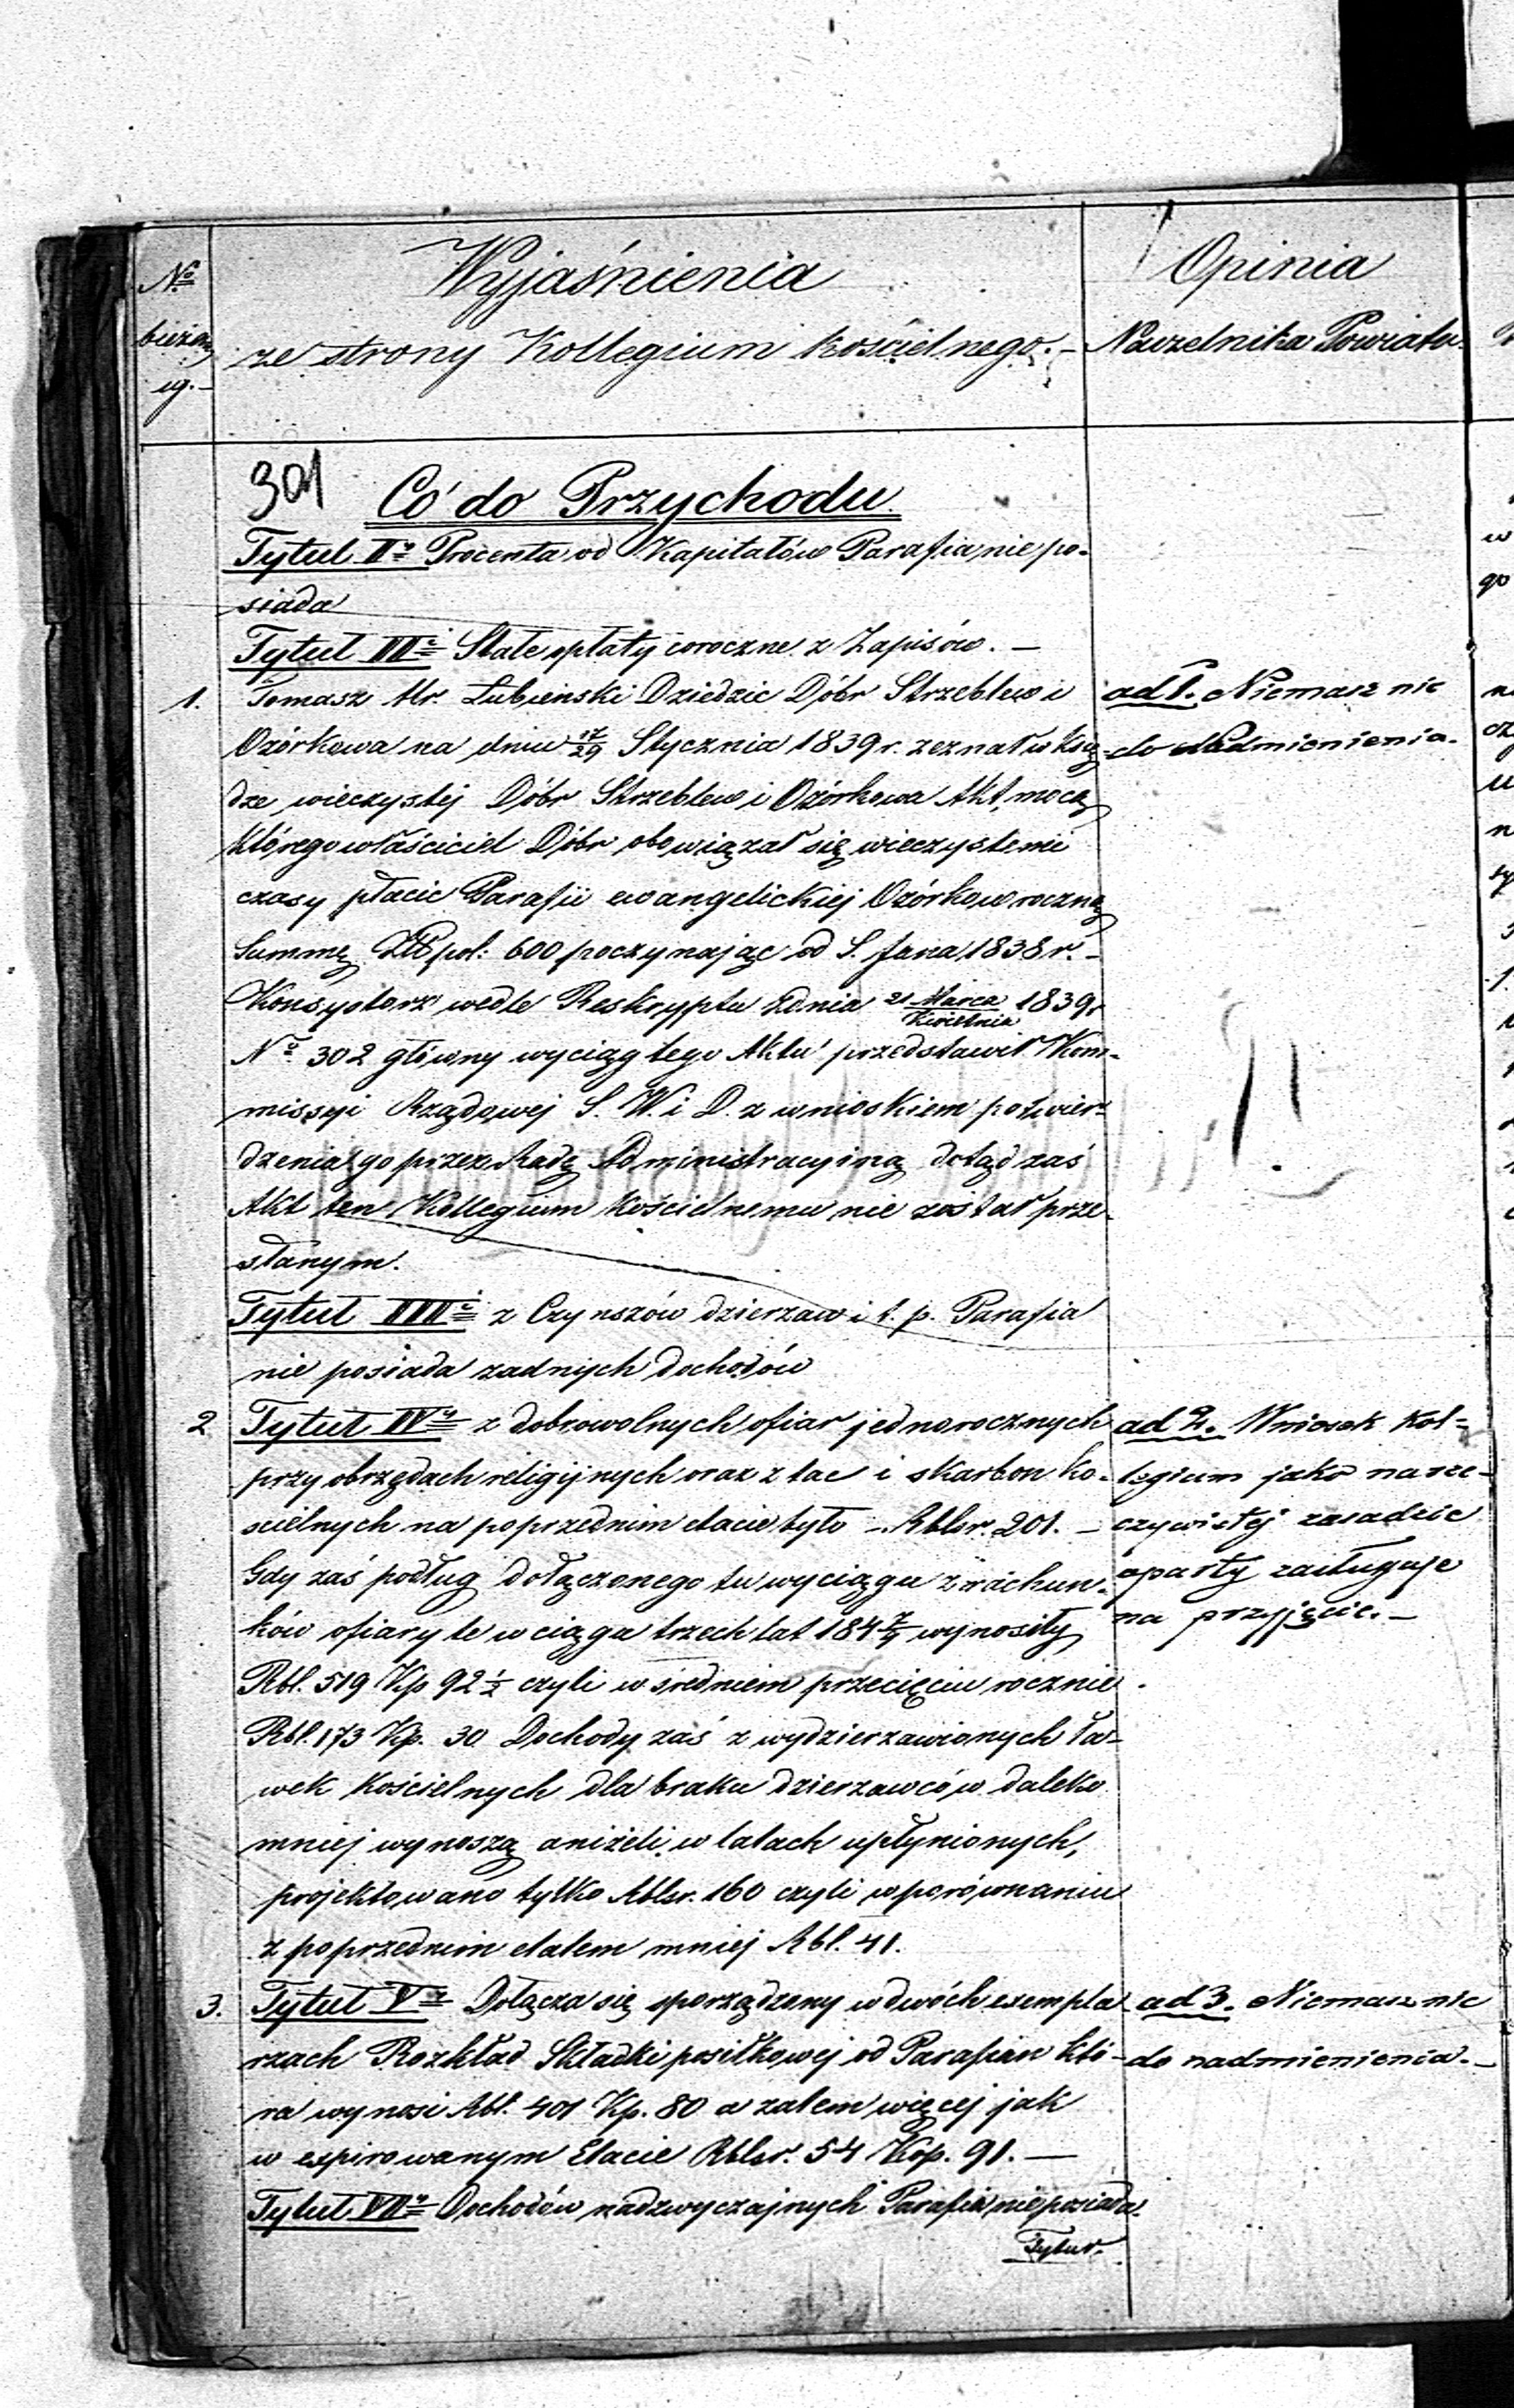 No
bieżą
cy.
Wyjaśnienia
ze strony Kollegium kościelnego.-
Opinia
Naczelnika Powiatu.
301
Co do Przychodu.
Tytuł II Procenta od Kapitałów Parafia nie po-
siada
Tytuł III Stałe opłaty coroczne z Zapisów. -
1. Tomasz Hr. Łubieński Dziedzic Dóbr Strzeblew i
Ozórkowa na dniu 17/29 Stycznia 1839 r. zeznał w Księ
dze wieczystej Dóbr Strzeblew i Ozórkowa Akt, mocą
którego właściciel Dóbr obowiązał się wieczystemi
czasy płacic Parafii ewangelickiej Ozórkow roczną
Summę Złt pol: 600 poczynając od S. Jana 1838 r. -
Konsystorz wedle Reskryptu z dnia 21 Marca/Kwietnia 1839 r
No 302 główny wyciąg tego Aktu przedstawił Kom-
missyi Rządowej S. W. i D. z wnioskiem potwier-
dzenia go przez Radę Administracyjną dotąd zaś
Akt ten Kollegium Kościelnemu nie został prze-
słanym.
ad 1. Niemasz nic
do Nadmienienia.
Tytuł IIII z Czynszów dzierzaw i t. p. Parafia
nie posiada zadnych dochodów
2 Tytuł IV z dobrowolnych ofiar jednorocznych
przy obrzędach religijnych oraz z tac i skarbon ko-
scielnych na poprzednim etacie było - Rblsr. 201. -
Gdy zaś podług dołączonego tu wyciągu z rachun-
ków ofiary te w ciągu trzech lat 184 7/9 wynosiły
Rbl. 519 Kp 92 1/2 czyli w średniem przecięciu rocznie
Rbl. 173 Kp. 30. Dochody zaś z wydzierzawionych ła-
wek Kościelnych dla braku dzierzawców daleko
mniej wynoszą aniżeli w latach upłynionych,
projektowano tylko Rblsr. 160 czyli w porównaniu
z poprzednim etatem mniej Rbl. 41.
ad 2. Wniosek Kol-
legium jako na rze-
czywistej zasadzie
oparty zasługuje
na przyjęcie. -
3. Tytuł V Dołącza się sporządzony w dwóch exempla
rzach Rozkład Składki posiłkowej od Parafian któ-
ra wynosi Rbl. 401 Kp. 80 a zatem więcej jak
w expirowanym Etacie Rblsr. 54 Kop. 91. -
ad 3. Niemasz nic
do nadmienienia. -
Tytuł VI Dochodów nadzwyczajnych Parafia nie posiada.
Tytuł.